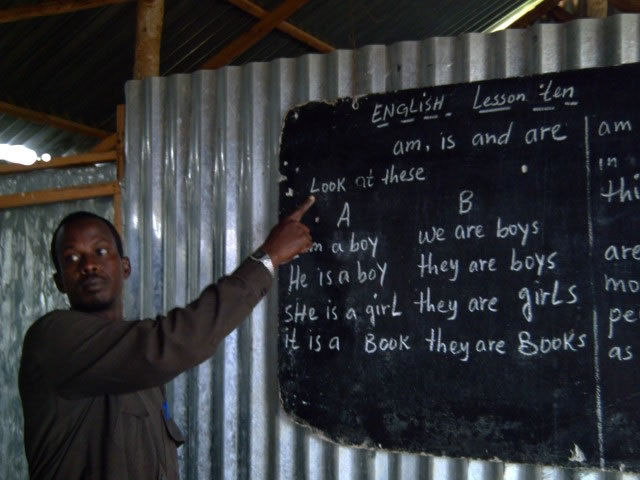 ENGLISH Lesson ten
am, is and are
Look at these
A B
am a boy we are boys
He is a boy they are boys
SHe is a girL they are girLs
it is a Book they are Books
am
in
thi
are
mo
pe
as